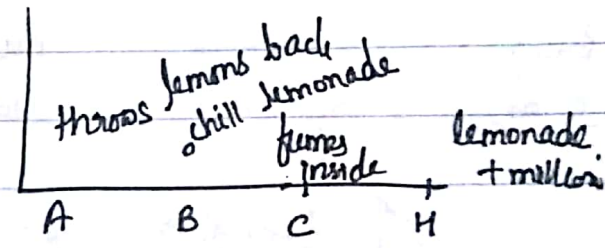 throws lemons back
chill lemonade
fumes
inside
lemonade
+ million
A B C H